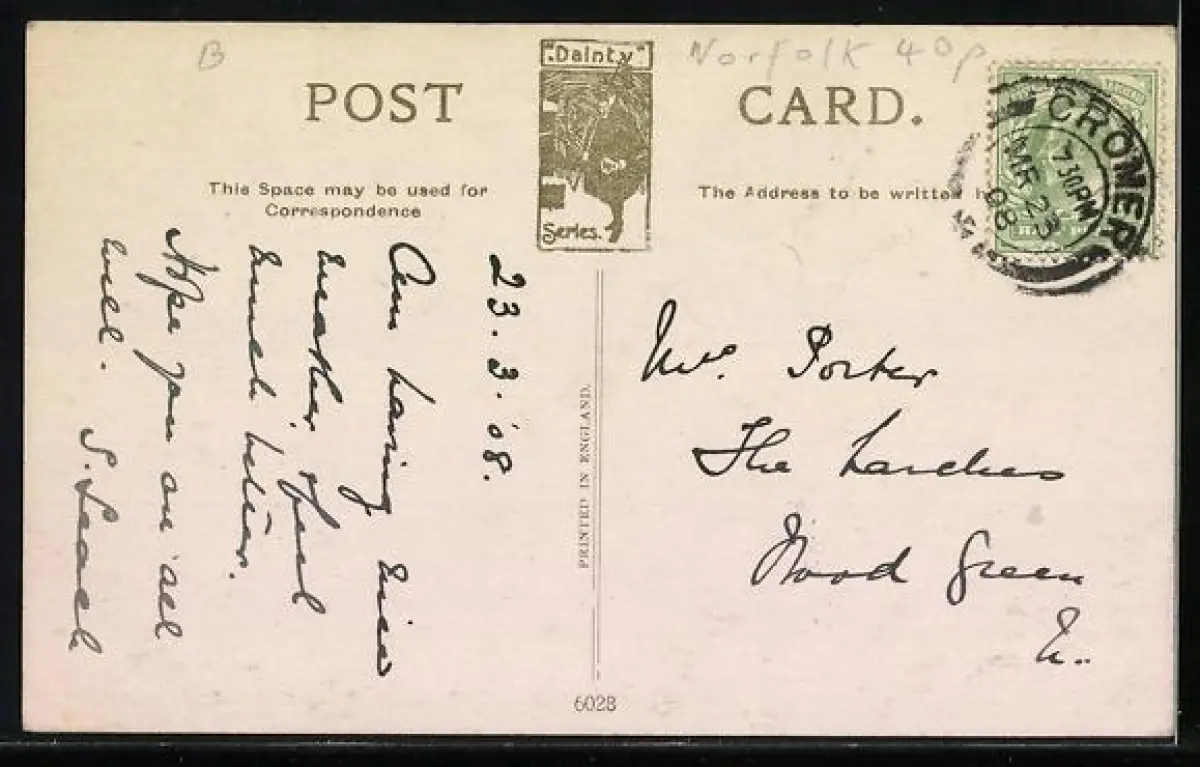 B
Norfolk 40p
"Dainty"
Series.
POST CARD.
This Space may be used for
Correspondence
The Address to be written
CROMER
7 30 PM
MR 23
08
23.3.'08.
Am having nice
weather, & feel
much better.
Hope you are all
well.
S. Leach
Mrs. Porter
The Larches
Wood Green
N.
PRINTED IN ENGLAND.
6023